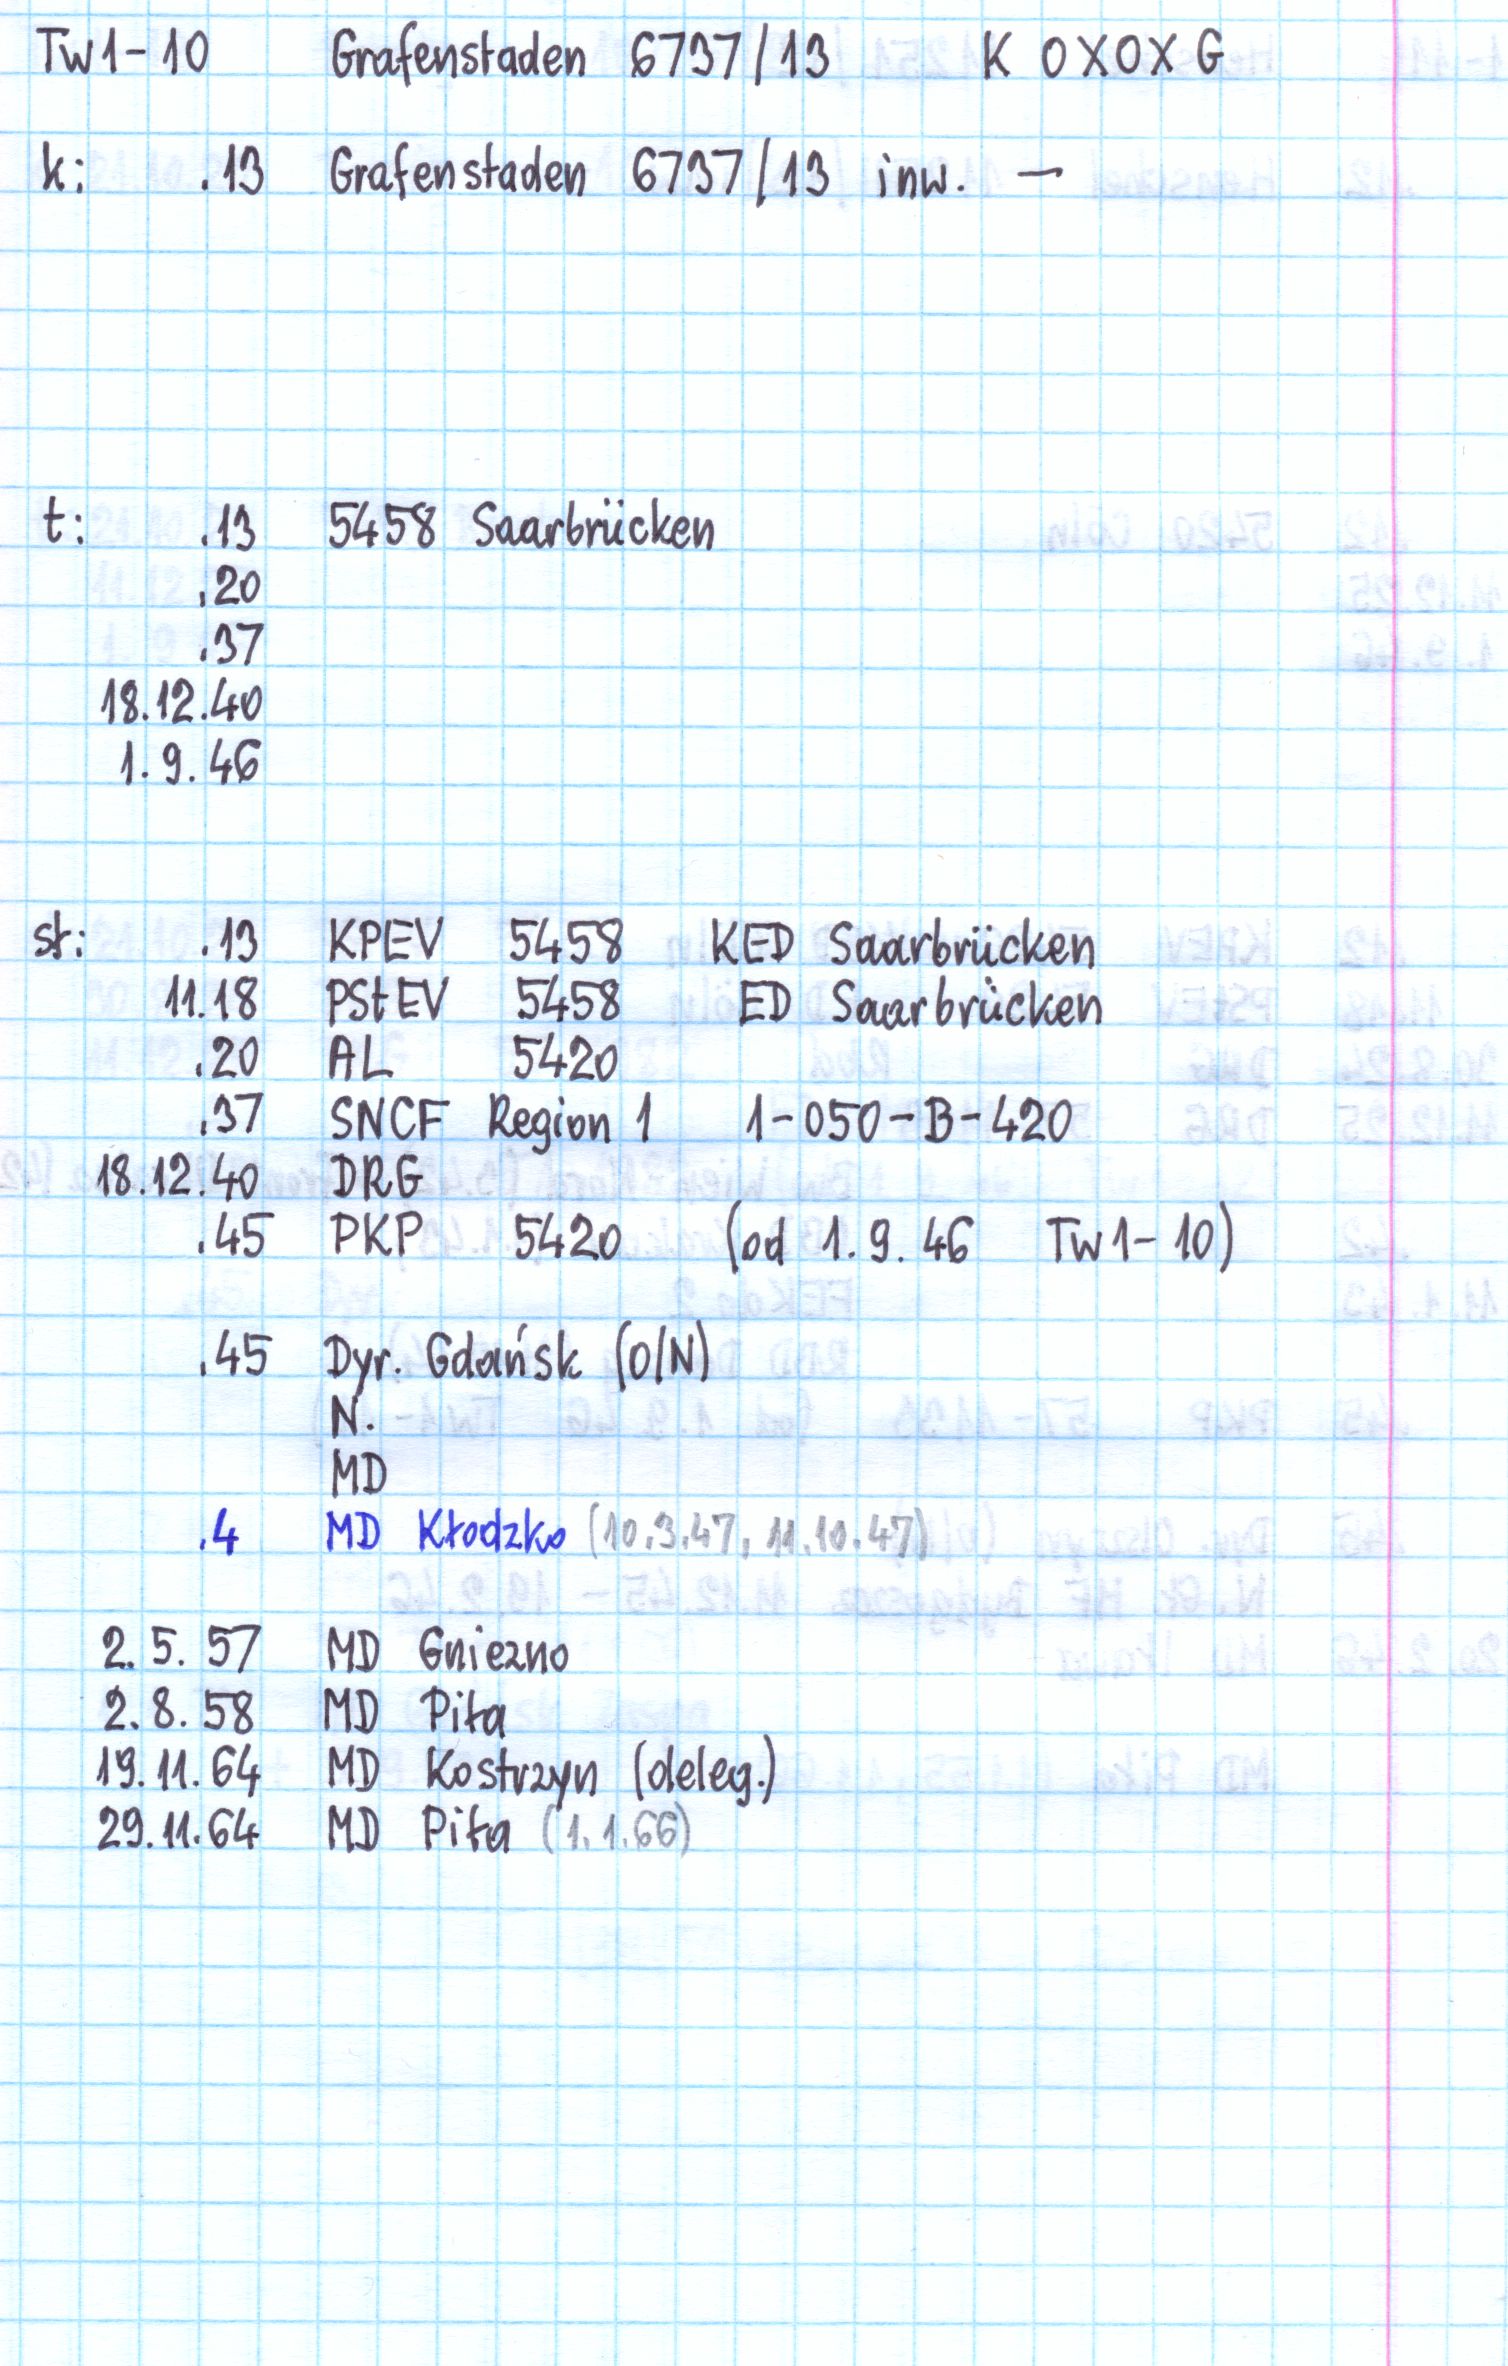 Tw1-10 Grafenstaden 6737/13 K OXOXG
k: .13 Grafenstaden 6737/13 inw. —
t: .13 5458 Saarbrücken
.20
.37
18.12.40
1.9.46
st: .13 KPEV 5458 KED Saarbrücken
11.18 PStEV 5458 ED Saarbrücken
.20 AL 5420
.37 SNCF Region 1 1-050-B-420
18.12.40 DRG
.45 PKP 5420 (od 1.9.46 Tw1-10)
.45 Dyr. Gdańsk (O/N)
N.
MD
.4 MD Kłodzko (10.3.47, 11.10.47)
2.5.57 MD Gniezno
2.8.58 MD Piła
19.11.64 MD Kostrzyn (deleg.)
29.11.64 MD Piła (1.1.66)